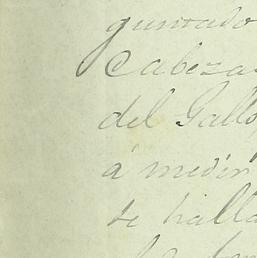 guntado
Cabeza
del Gallo
á medir
se halla